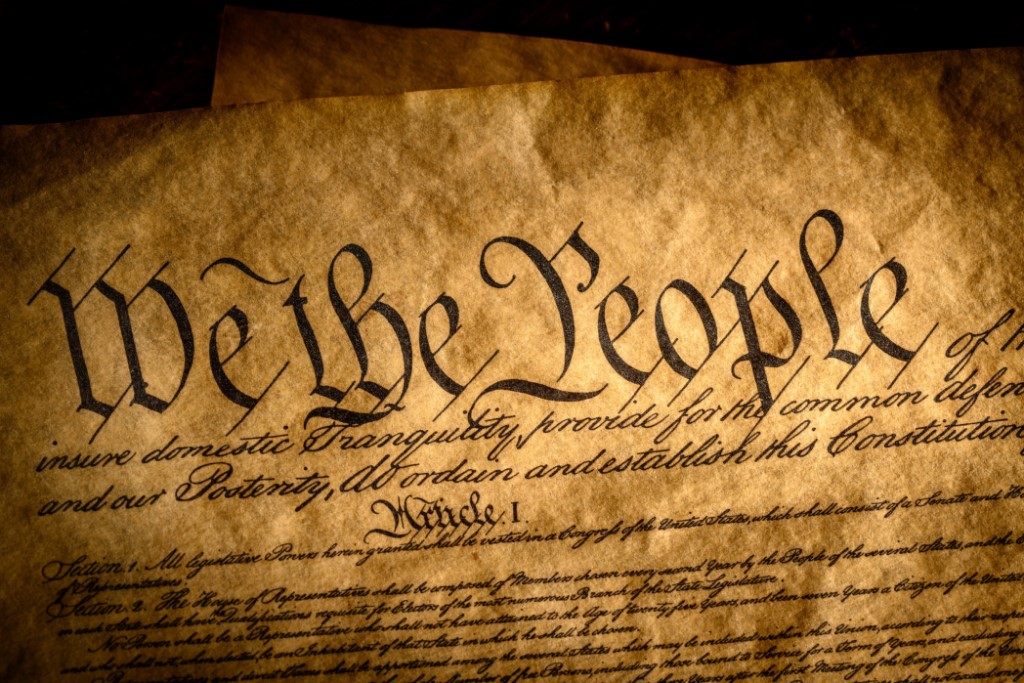 We the People of th
insure domestic Tranquility, provide for the common defen
and our Posterity, do ordain and establish this Constitution
Article. I.
Section 1. All legislative Powers herein granted shall be vested in a Congress of the United States, which shall consist of a Senate and Ho
of Representatives.
Section 2. The House of Representatives shall be composed of Members chosen every second Year by the People of the several States, and the
in each State shall have the Qualifications requisite for Electors of the most numerous Branch of the State Legislature.
No Person shall be a Representative who shall not have attained to the Age of twenty five Years, and been seven Years a Citizen of the United
and who shall not, when elected, be an Inhabitant of that State in which he shall be chosen.
Representatives and direct Taxes shall be apportioned among the several States which may be included within this Union, according to their
Number of free Persons, including those bound to Service for a Term of Years, and excluding
Years after the first Meeting of the Congress of the